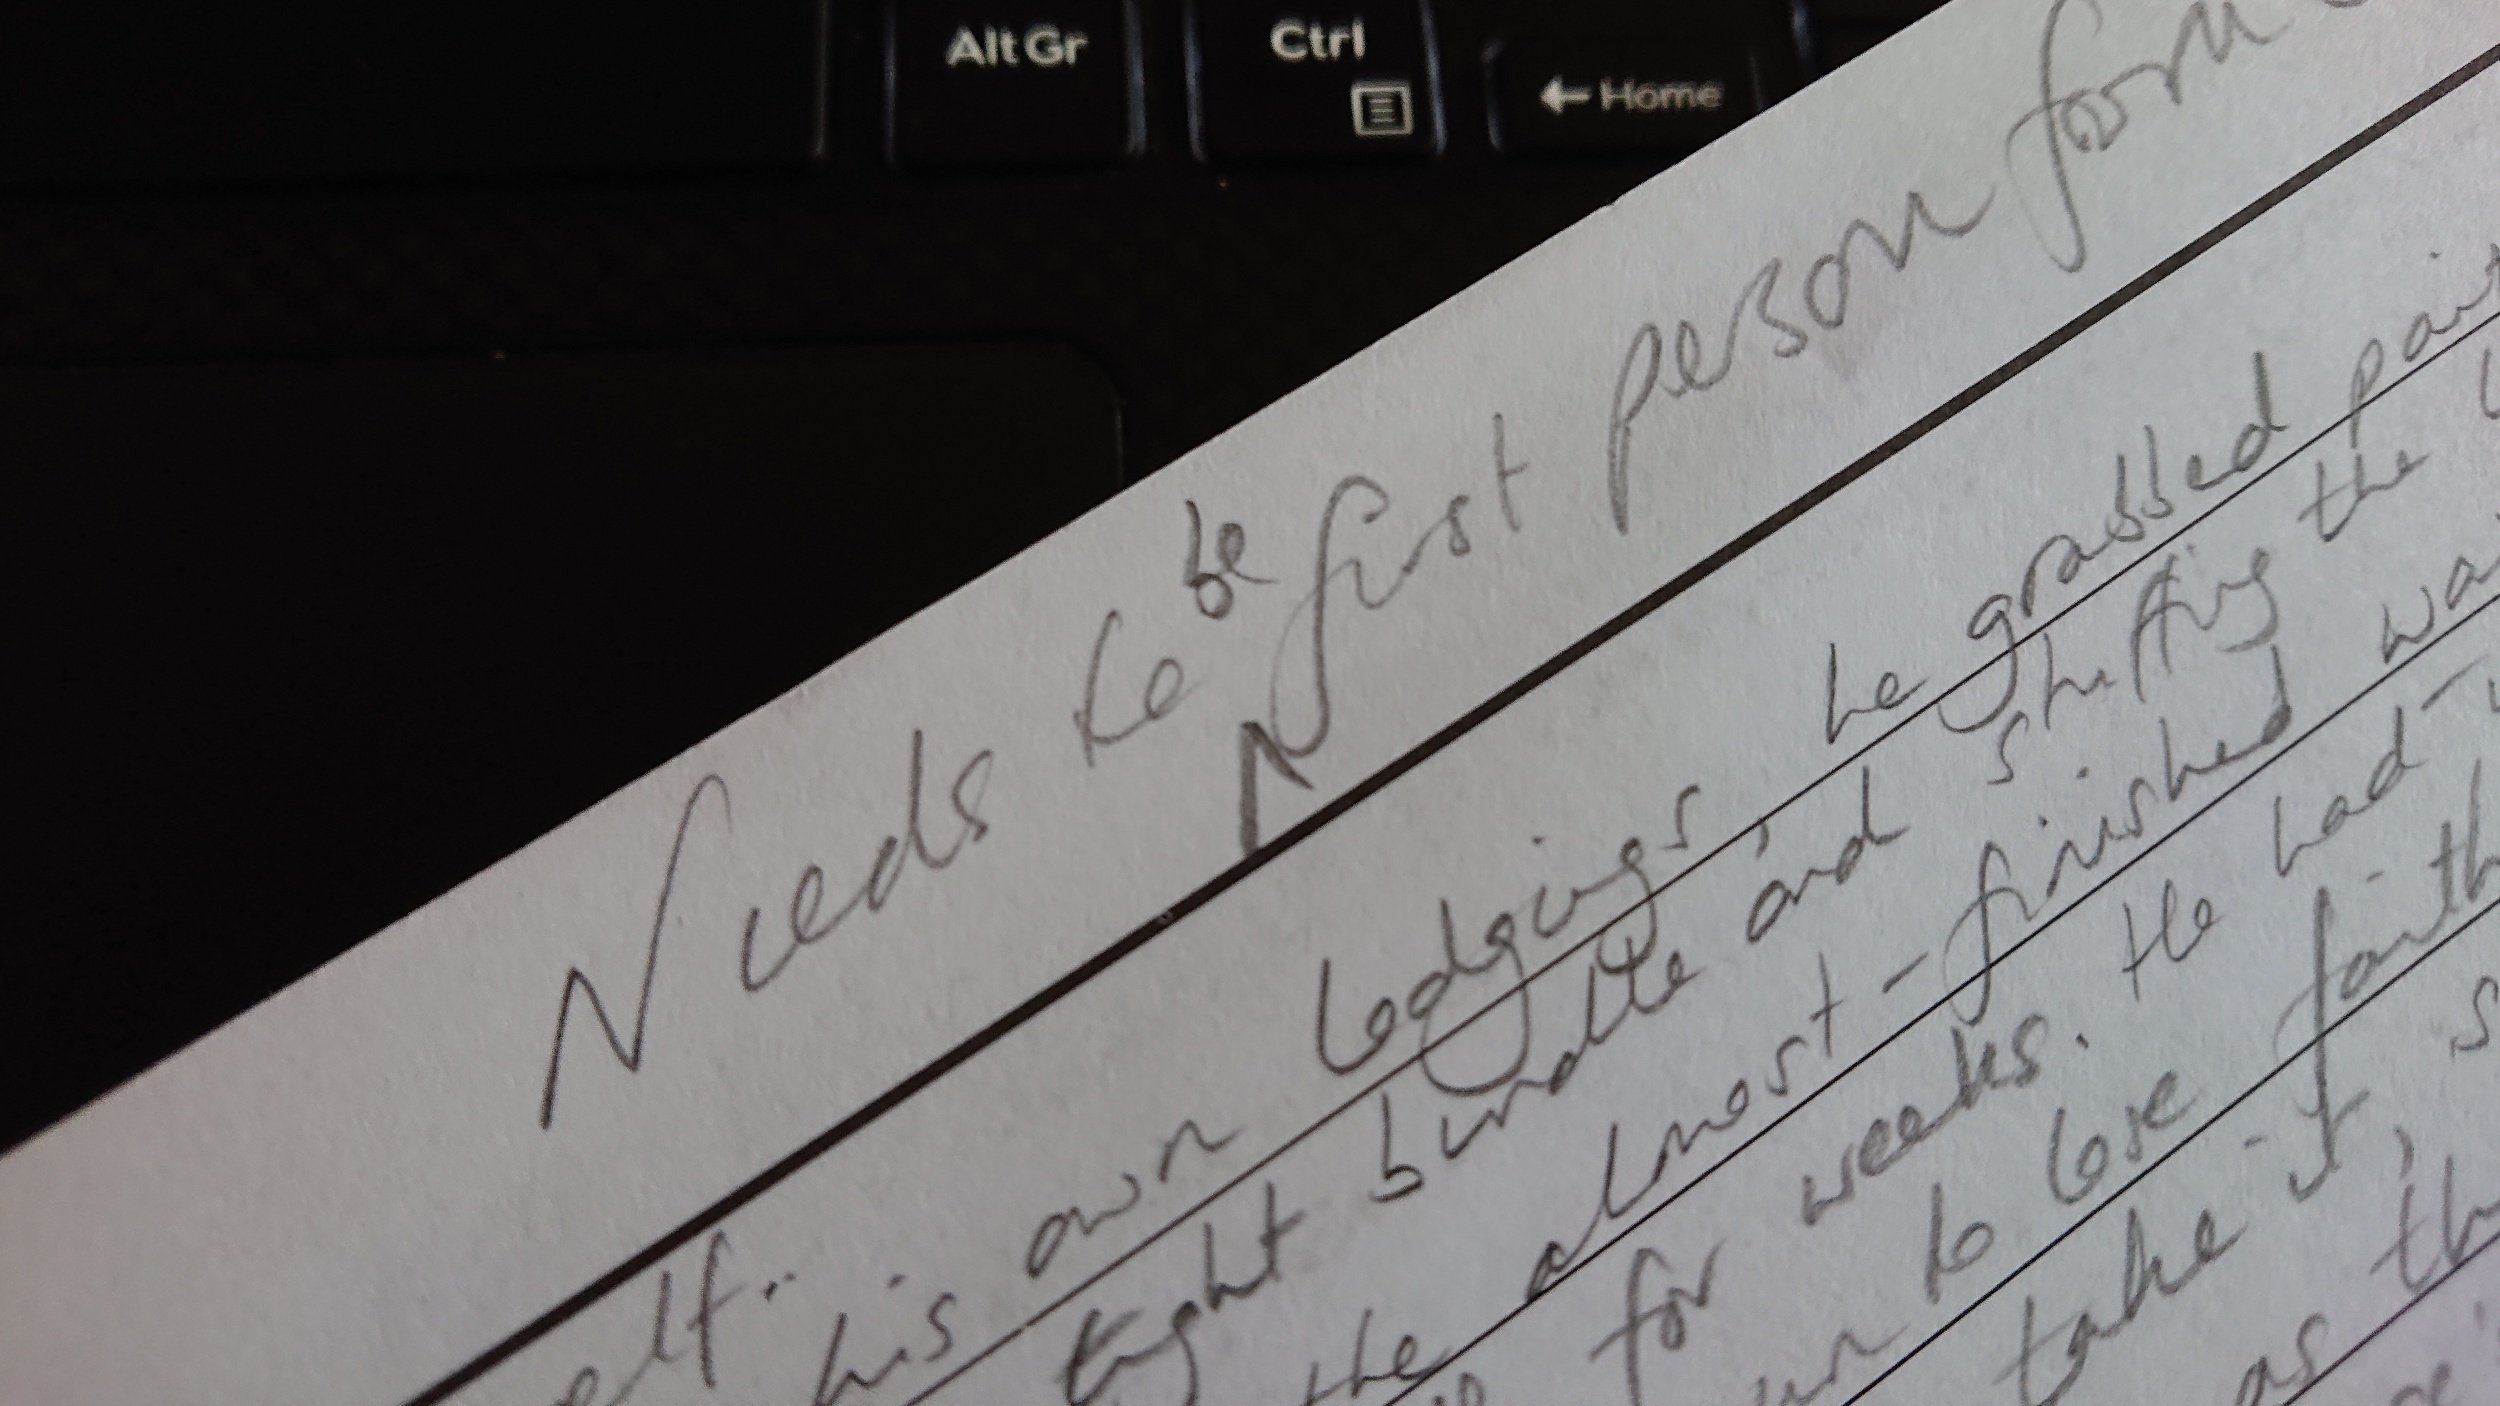 Alt Gr Ctrl ← Home
Needs to be first person form
elf..
his own lodgings, he grabbed
tight bundle and shifting the
the almost-finished
for weeks. He had
to lose faith
take it,
as